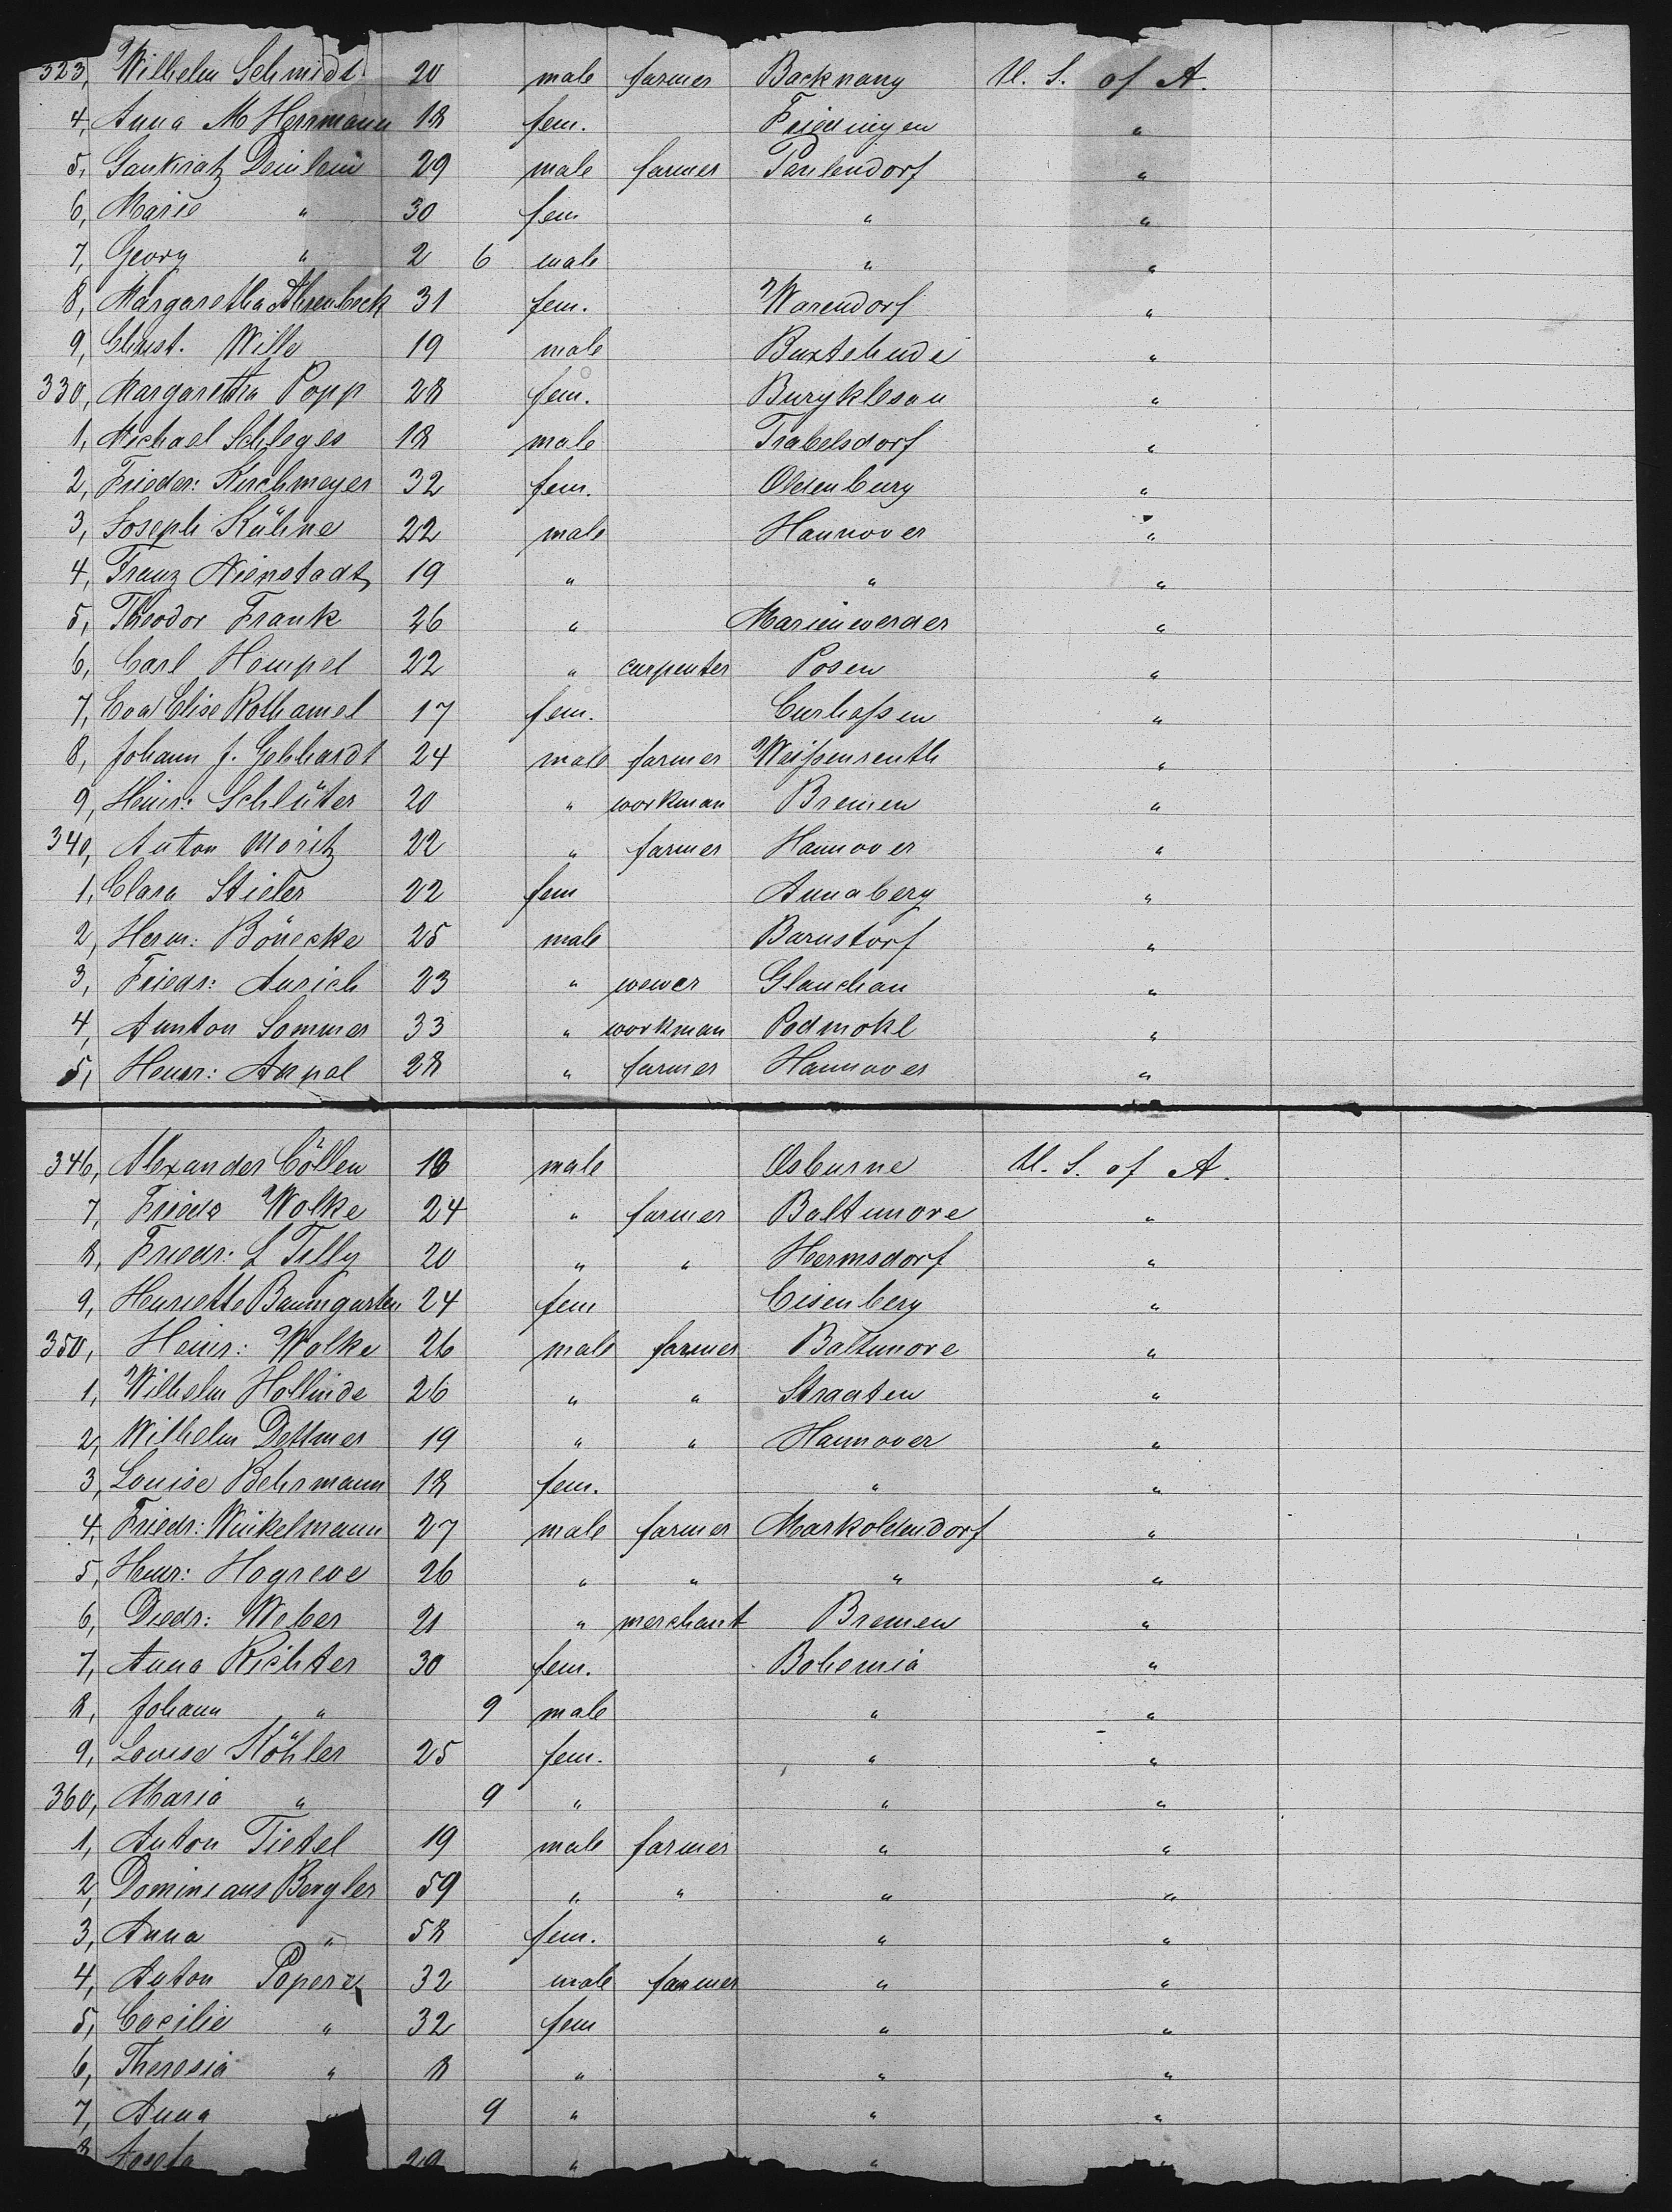 323, Wilhelm Schmidt 20 male farmer Backnang U. S. of A.
4, Anna M Herrmann 18 fem. Fridingen "
5, Gankratz Deinlein 29 male farmer Paulendorf "
6, Marie " 30 fem " "
7, Georg " 2 6 male " "
8, Margaretha Ahrenbeck 31 fem. Warendorf "
9, Christ. Wille 19 male Buxtehude "
330, Margaretha Popp 28 fem. Burgklesau "
1, Michael Schleger 18 male Trabelsdorf "
2, Frieder: Kirchmeyer 32 fem. Oldenburg "
3, Joseph Kühne 22 male Hannover "
4, Franz Nienstadt 19 " " "
5, Theodor Frank 26 " Marienwerder "
6, Carl Hempel 22 " carpenter Posen "
7, Eva Elise Rothamel 17 fem. Curhessen "
8, Johann J. Gebhardt 24 male farmer Weissenreuth "
9, Heinr: Schlüter 20 " workman Bremen "
340, Anton Moritz 22 " farmer Hannover "
1, Clara Stieler 22 fem Annaberg "
2, Herm: Bönecke 25 male Barnstorf "
3, Friedr: Aurich 23 " wewer Glauchau "
4, Annton Sommer 33 " workman Podmokl "
5, Heinr: Appel 28 " farmer Hannover "
346, Alexander Cöllen 18 male Osburne U. S. of A.
7, Friedr Wolke 24 " farmer Baltimore "
8, Friedr: L Tilly 20 " " Hermsdorf "
9, Henriette Baumgarten 24 fem Eisenberg "
350, Heinr: Wolke 26 male farmer Baltimore "
1, Wilhelm Hollinde 26 " " Straaten "
2, Wilhelm Dettmer 19 " " Hannover "
3, Louise Behrmann 18 fem. " "
4, Friedr: Winkelmann 27 male farmer Markoldendorf "
5, Heinr: Hogreve 26 " " " "
6, Diedr: Weber 21 " merchant Bremen "
7, Anna Richter 30 fem. Bohemia "
8, Johann " 9 male " "
9, Louise Köhler 25 fem. " "
360, Maria " 9 " " "
1, Anton Tietel 19 male farmer " "
2, Dominicaus Bergler 59 " " " "
3, Anna " 58 fem. " "
4, Anton Popera 32 male farmer " "
5, Cacilie " 32 fem " "
6, Theresia " 8 " " "
7, Anna " 9 " " "
8 Josefa 29 " "